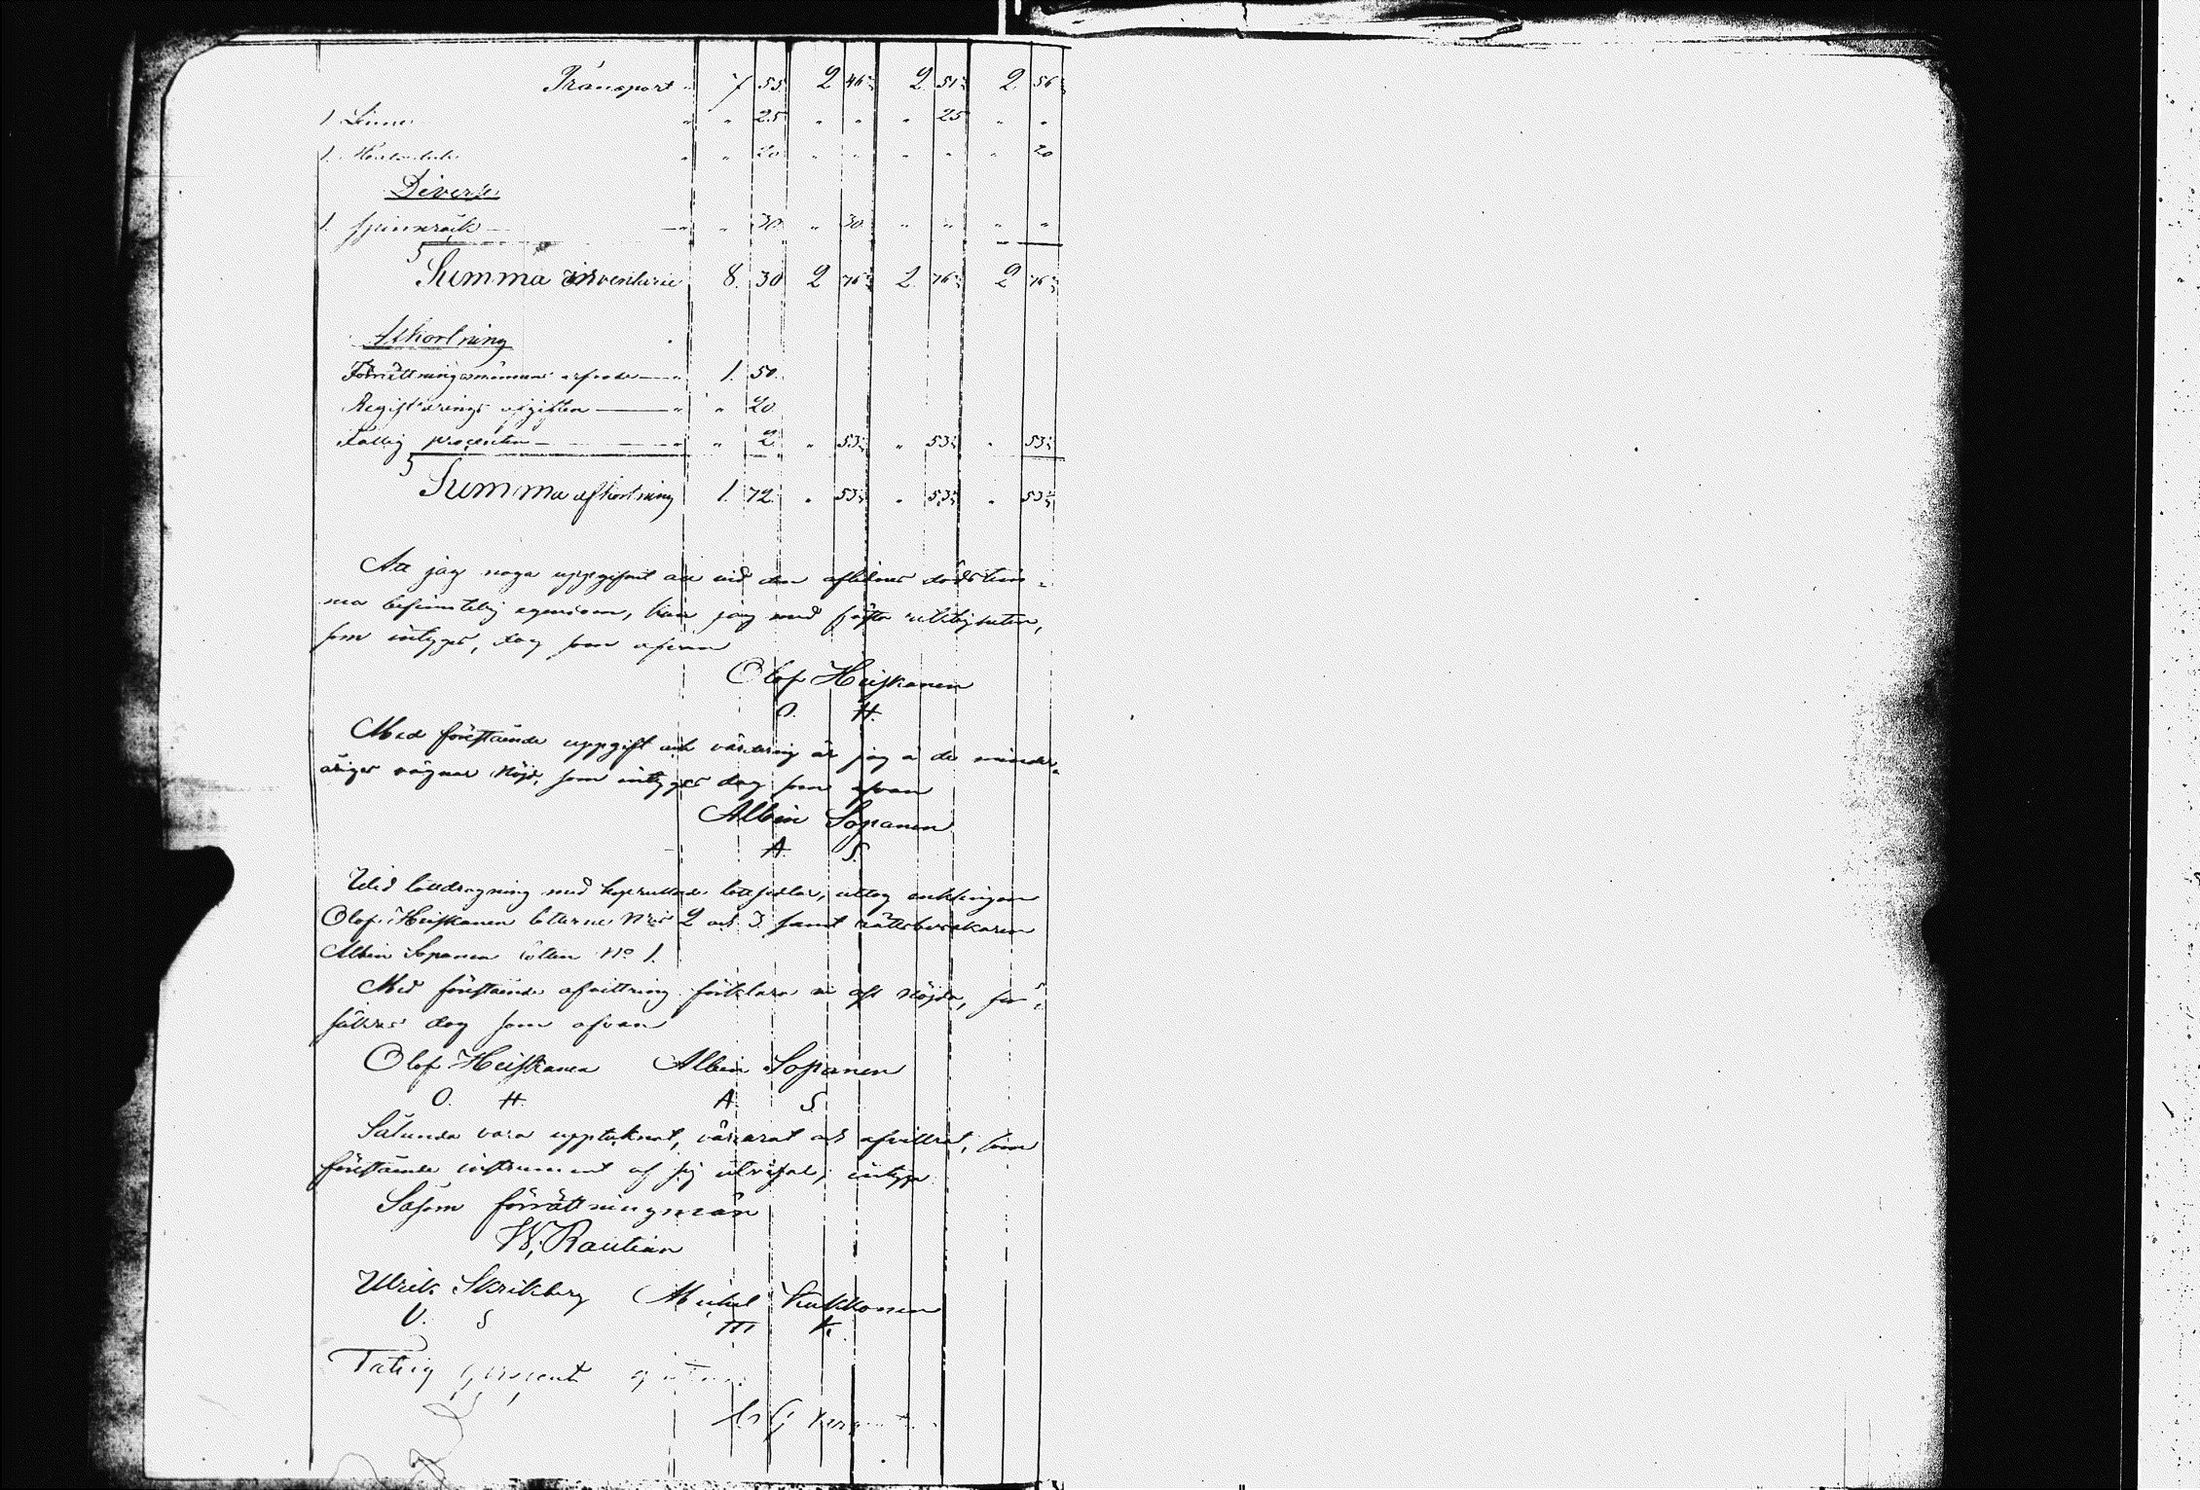 Transport " 7 55 2 46⅔ 2 51⅔ 2 56⅔
1 Linne " " 25 " " " 25 " "
1 " " 20 " " " " " 20
Diverse
1 spinnråck " " 30 " 30 " " " "
Summa inventarie 8. 30 2 76⅔ 2 76⅔ 2 76⅔
Afkortning
Förrättningsmännens arfvode " 1. 50
Registrerings afgiften " " 20
Fattig procenten " " 2 " 53⅓ " 53⅓ " 53⅓
Summa afkortning 1. 72 " 53⅓ " 53⅓ " 53⅓
Att jag noga uppgifvit all vid den aflidnes dödstim-
ma befintelig egendom, kan jag med fästa,
som intygas, dag som ofvan
Olof Heiskanen
O. H.
Med förestående uppgift och värdering är jag å de minder-
åriges vägnar nöjd, som intygas dag som ofvan
Albin Sopanen
A. S.
Wid lottdragning med hoprullade lottsedlar, uttog enklingen
Olof Heiskanen lotterne Nris 2 och 3 samt rättsbevakaren
Albin Sopanen lotten No 1.
Med förestående afvittring förklara vi oss nöjda, för-
säkras dag som ofvan
Olof Heiskanen Albin Sopanen
O. H. A. S.
Sålunda vara upptecknat, värderat och afvittrat, som
förestående instrument af sig utvisar, intyga
Såsom förrättningsmän
W. Rautian
Ulrik Skrikberg Michel Kukkonen
U. S M K.
Fattig procent